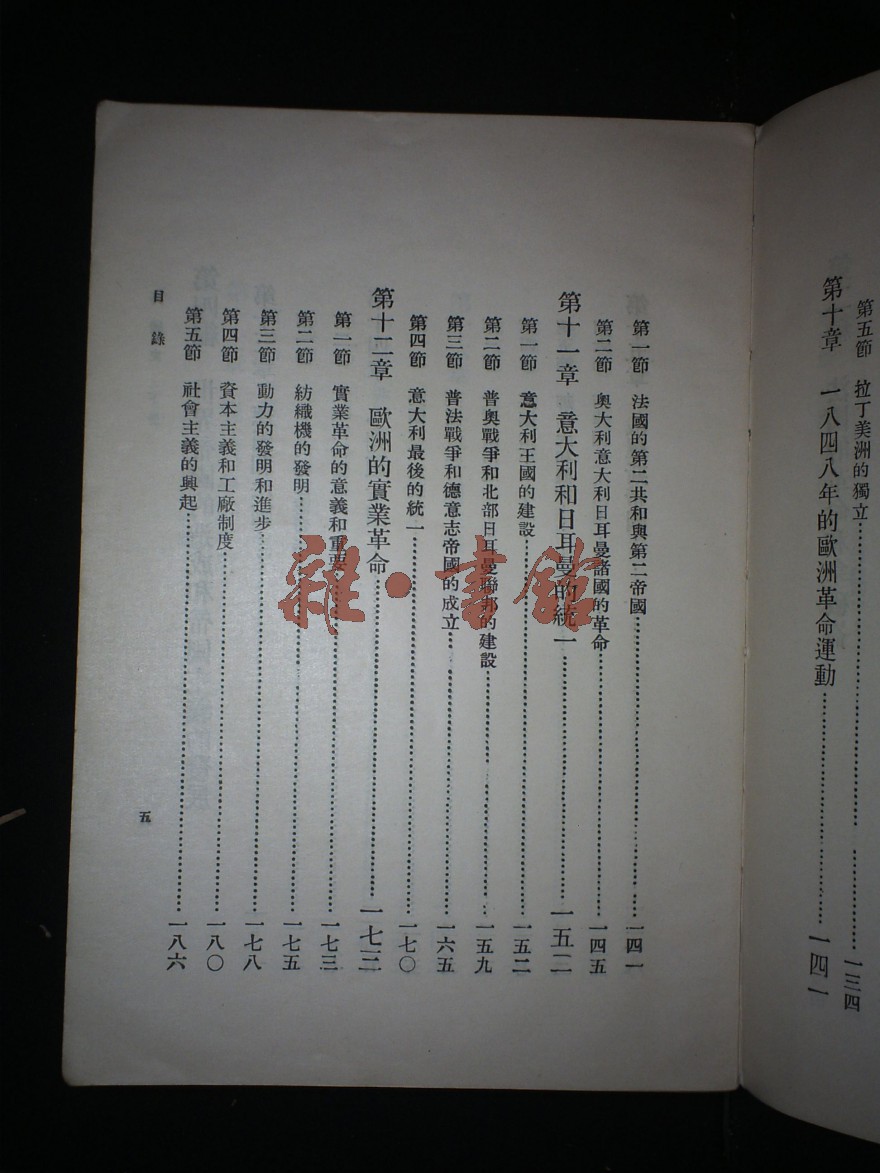 第五節 拉丁美洲的獨立……一三四
第十章 一八四八年的歐洲革命運動……一四一
第一節 法國的第二共和與第二帝國……一四一
第二節 奧大利意大利日耳曼諸國的革命……一四五
第十一章 意大利和日耳曼的統一……一五二
第一節 意大利王國的建設……一五二
第二節 普奧戰爭和北部日耳曼聯邦的建設……一五九
第三節 普法戰爭和德意志帝國的成立……一六五
第四節 意大利最後的統一……一七〇
第十二章 歐洲的實業革命……一七三
第一節 實業革命的意義和重要……一七三
第二節 紡織機的發明……一七五
第三節 動力的發明和進步……一七八
第四節 資本主義和工廠制度……一八〇
第五節 社會主義的興起……一八六
目錄
五
雜·書館